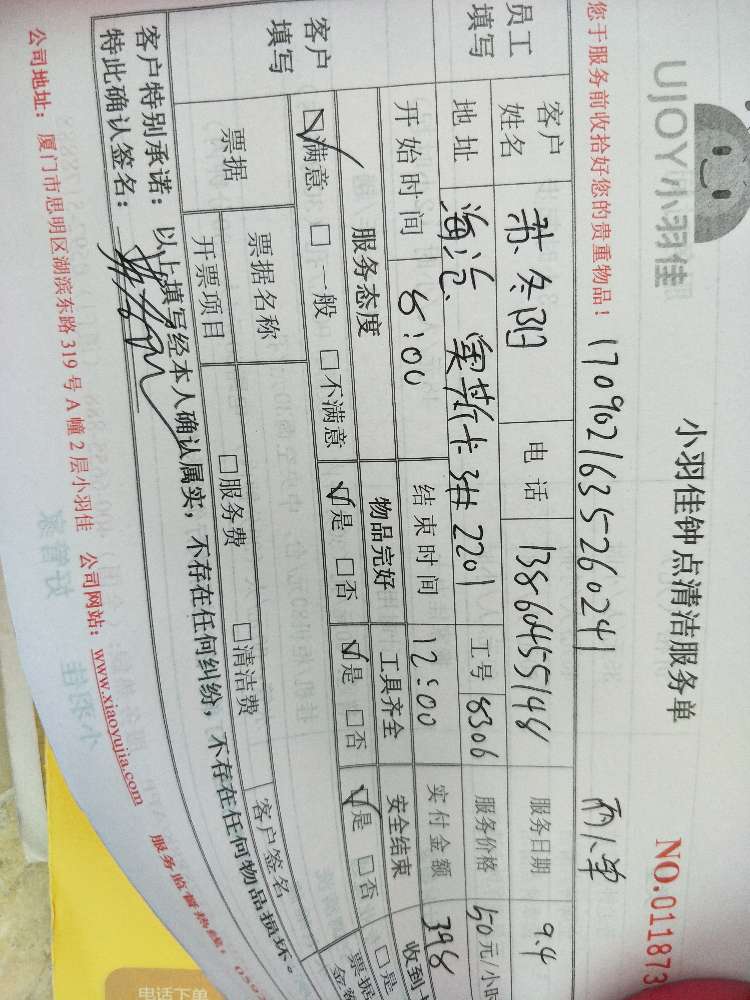 UJOY小羽佳
小羽佳钟点清洁服务单
NO.011873
您于服务前收拾好您的贵重物品！
1709021635260241
两小单
员工填写
客户姓名
苏冬阳
电话
13860455148
服务日期
9.4
地址
海沧、奥斯卡3#2201
工号
8306
服务价格
50元/小时
开始时间
8:00
结束时间
12:00
实付金额
398
客户填写
服务态度
物品完好
工具齐全
安全结束
收到
☑满意 □一般 □不满意
☑是 □否
☑是 □否
☑是 □否
□是
票据
票据名称
客户签名
票据
开票项目
□服务费 □清洁费
客户特别承诺：以上填写经本人确认属实，不存在任何纠纷，不存在任何物品损坏。
特此确认签名：
公司地址：厦门市思明区湖滨东路319号A幢2层小羽佳 公司网站：www.xiaoyujia.com 服务监督热线：059
电话下单